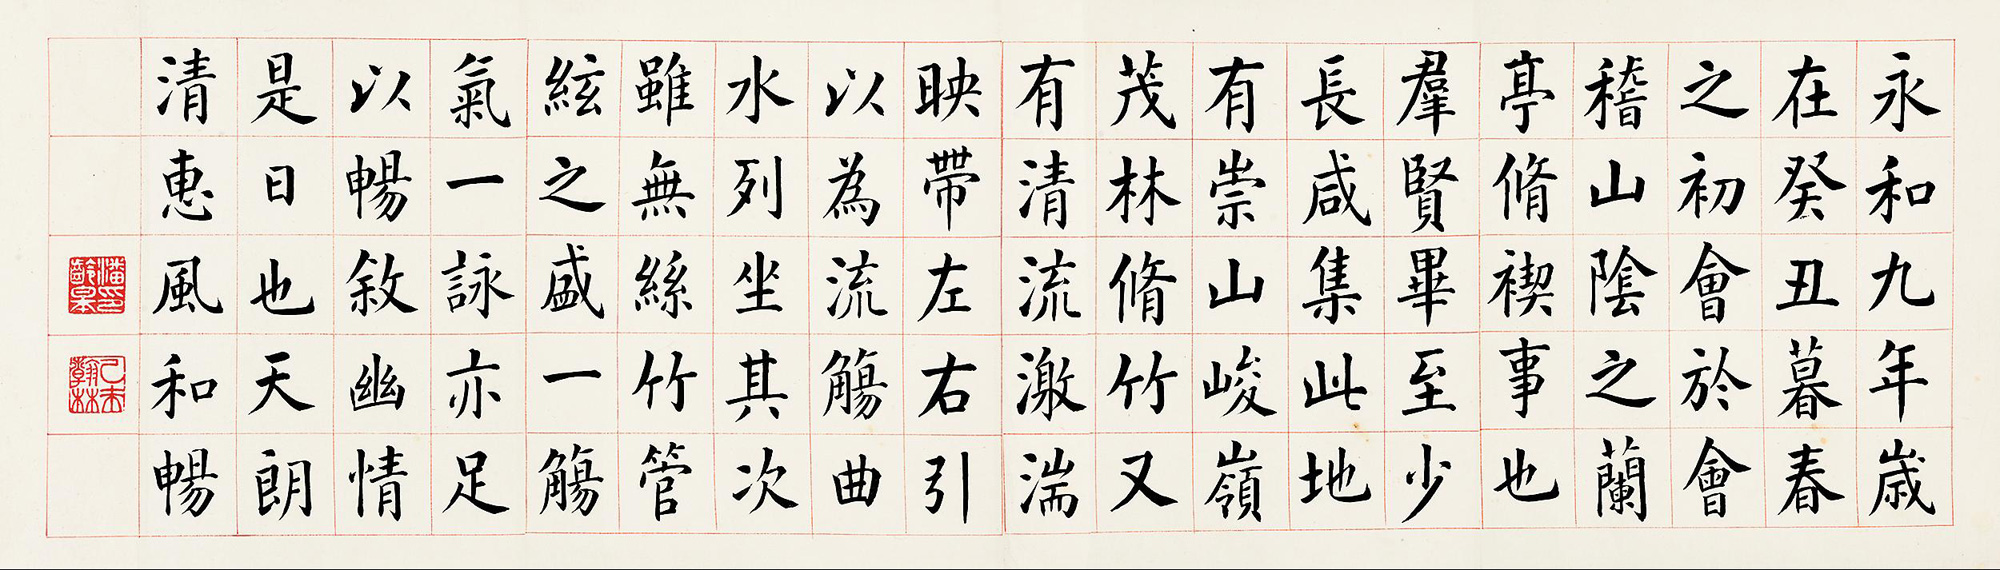 永和九年歲
在癸丑暮春
之初會於會
稽山陰之蘭
亭脩禊事也
羣賢畢至少
長咸集此地
有崇山峻嶺
茂林脩竹又
有清流激湍
映帶左右引
以為流觴曲
水列坐其次
雖無絲竹管
絃之盛一觴
氣一詠亦足
以暢敘幽情
是日也天朗
清惠風和暢
潘印齡皋
乙未翰林